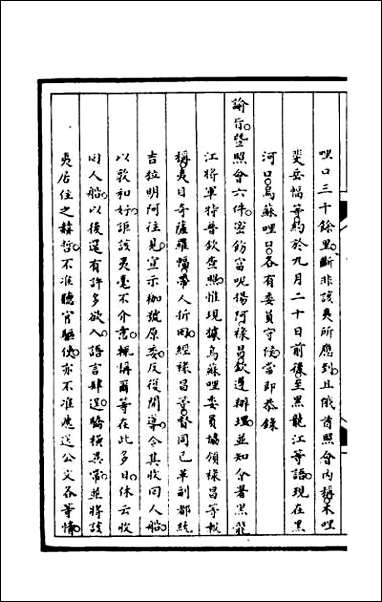 哩口三十餘里斷非該夷所應到且俄酋照會內稱木哩
斐岳幅等約於九月二十日前後至黑龍江等語現在黑
河口烏蘇哩口各有委員守候當即恭錄
諭旨暨照會六件密飭富呢揚阿祿昌欽遵辦理並知會署黑龍
江將軍特普欽查照惟現據烏蘇哩委員協領祿昌等報
稱夷目奇薩羅幅帶人折回經祿昌等督同已革副都統
吉拉明阿往見宣示枷號原委反復開導令其收回人船
以敦和好詎該夷毫不介意輒稱爾等在此多日休云收
回人船以後還有許多欲入語言肆逞驕橫異常並將該
夷居住之赫哲不准聽官驅使亦不准應送公文各等情